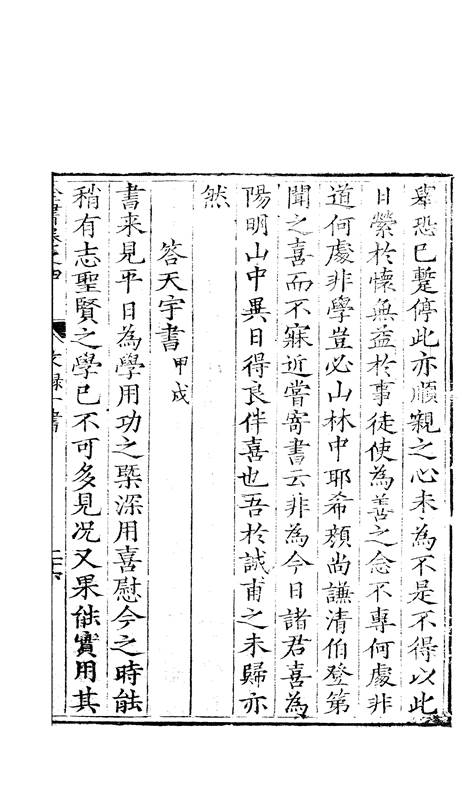 舉恐已蹔停此亦順親之心未為不是不得以此
日縈於懷無益於事徒使為善之念不專何處非
道何處非學豈必山林中耶希顏尚謙清伯登第
聞之喜而不寐近嘗寄書云非為今日諸君喜為
陽明山中異日得良伴喜也吾於誠甫之未歸亦
然
答天宇書甲戌
書来見平日為學用功之槩深用喜慰今之時能
稍有志聖賢之學已不可多見况又果能實用其
全書卷之四 文録一書 二十六